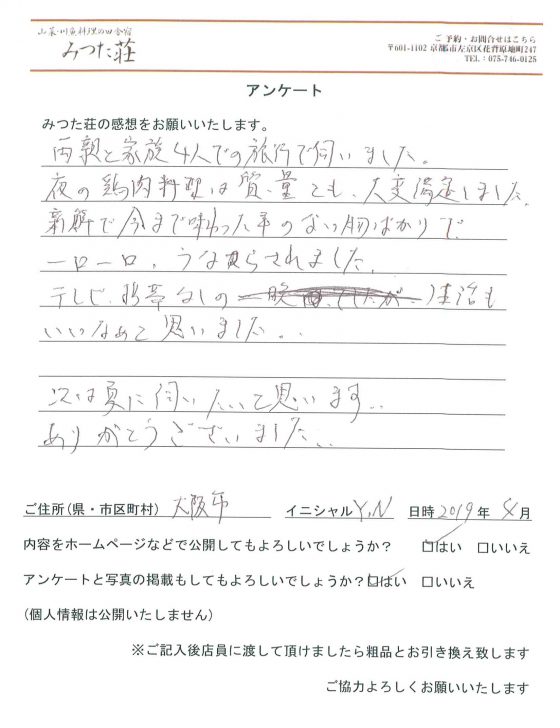 山菜・川魚料理の田舎宿
みつた荘
ご予約・お問合せはこちら
〒601-1102 京都市左京区花背原地町247
TEL：075-746-0125
アンケート
みつた荘の感想をお願いいたします。
両親と家族4人での旅行で伺いました。
夜の鶏肉料理は質、量とも、大変満足しました。
新鮮で今まで味わった事のない物ばかりで
一口一口、うならされました。
テレビ、携帯なしの 生活も
いいなあと思いました。
次は夏に伺いたいと思います。
ありがとうございました。
ご住所(県・市区町村) 大阪市 イニシャル Y,N 日時 2019 年 4 月
内容をホームページなどで公開してもよろしいでしょうか？ □はい □いいえ
アンケートと写真の掲載もしてもよろしいでしょうか？□はい □いいえ
(個人情報は公開いたしません)
※ご記入後店員に渡して頂けましたら粗品とお引き換え致します
ご協力よろしくお願いいたします